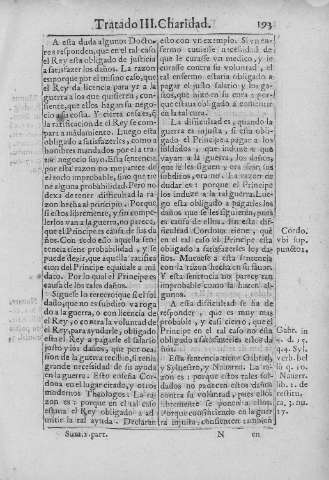 Tratado III. Charidad. 193
A esta duda algunos Docto-
res responden, que en el tal caso
el Rey esta obligado de justicia
a satisfazer los daños. La razon
enporque por el mismo caso, que
el Rey da licencia para yr a la
guerra a los que quisieren, y
consiente, que ellos hagan su nego-
cio a su costa. Y cierta cosa es, q
la ratificacion de el Rey se com-
para a mãdamiento. Luego esta
obligado a satisfazerles, como a
hombres mandados por el a tra-
tar negocio suyo. Esta sentencia
por esta razon no me parece de
el todo improbable, sino que tie-
ne alguna probabilidad. Pero no
dexa de tener dificultad la ra-
zon hecha al principio. Porque
si estos libremente, y sin compel-
lerlos van a la guerra, no parece,
que el Principe es causa de los da-
ños. Con todo esso aquella sen-
tencia tiene probabilidad, y se
puede dezir, que aquella ratifica-
cion del Principe equiuale a mã-
dato. Por lo qual el Principe es
causa de los tales daños.
Siguese lo tercero que si el sol
dado, que no es subdito va roga
do a la guerra, o con licencia de
el Rey, o contra la voluntad de
el Rey, para ayudarle, obligado
esta el Rey a pagarle el salario
justo y los daños, que por oca-
sion de la guerra recibio, si tenia
grande necessidad de su ayuda
en la guerra. Esto enseña Cor-
doua en el lugar citado, y otros
modernos Theologos. La ra-
zon es: porque en tal caso
estaua el Rey obligado a ad
mitir la tal ayuda. Declarase
esto con vn exemplo. Si vn en-
fermo tuuiesse necessidad de
que le curasse vn medico, y le
curasse contra su voluntad, el
tal enfermo estaria obligado a
pagar el justo salario, y los ga-
stos, que hizo en la cura: por-
que estaua obligado a consentir
en la tal cura.
La dificultad es, quando la
guerra es injusta, si esta obli-
gado el Principe a pagar a los
soldados, que induze a que
vayan a la guerra, los daños,
que se les siguen, ora sean sus
subditos, ora no. La razon de
dudar es: porque el Principe
los induze a la tal guerra. Luego
esta obligado a pagarles los
daños que se les siguieren, pues
es causa de ellos. En esta di-
ficultad Cordoua tiene, que
en el tal caso el Principe esta
obligado a satisfazerles los da-
ños. Mueuese a esta sentencia
con la razon hecha en su fauor.
Y esta sentencia no parece tan
improbable, como la hazen al-
gunos.
A esta dificultad se ha de
responder, que es muy mas
probable, y casi cierto, que el
Principe en el tal caso no esta
obligado a satisfazerles estos da
ños.
Esta sentencia tiene Gabriel,
y Syluestro, y Nauarro. La ra-
zon es: porque estos tales sol-
dados no son inuoluntarios.
Porque consintiendo en la guer-
ra injusta, consienten tambien
Cordo.
vbi sup.
punct. 2.
Gabr. in
4. d. 15.
q. 4. Sylu.
verb. bel
lū q. 10.
Nauarr.
lib. 2. de
restitu.
ca. 3. nu.
17.
Sum. 2. part. N en